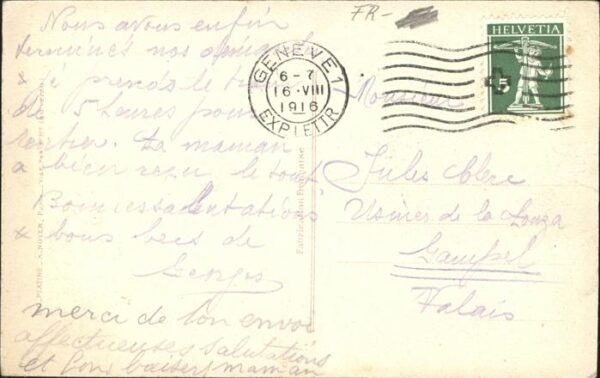 Nous avons enfin
terminés nos
& je prends le
de 5 heures pour
rentrer. La maman
a bien reçu le tout
Bonnes salentations
& bons becs de
Georges
merci de ton envoi
affectueuses salutations
et bons baisers maman
FR-
GENÈVE 1
6-7
16·VIII
1916
EXP. LETTR
HELVETIA
5
Monsieur
Jules Clerc
Usines de la Lonza
Gampel
Valais
Fabrication Française